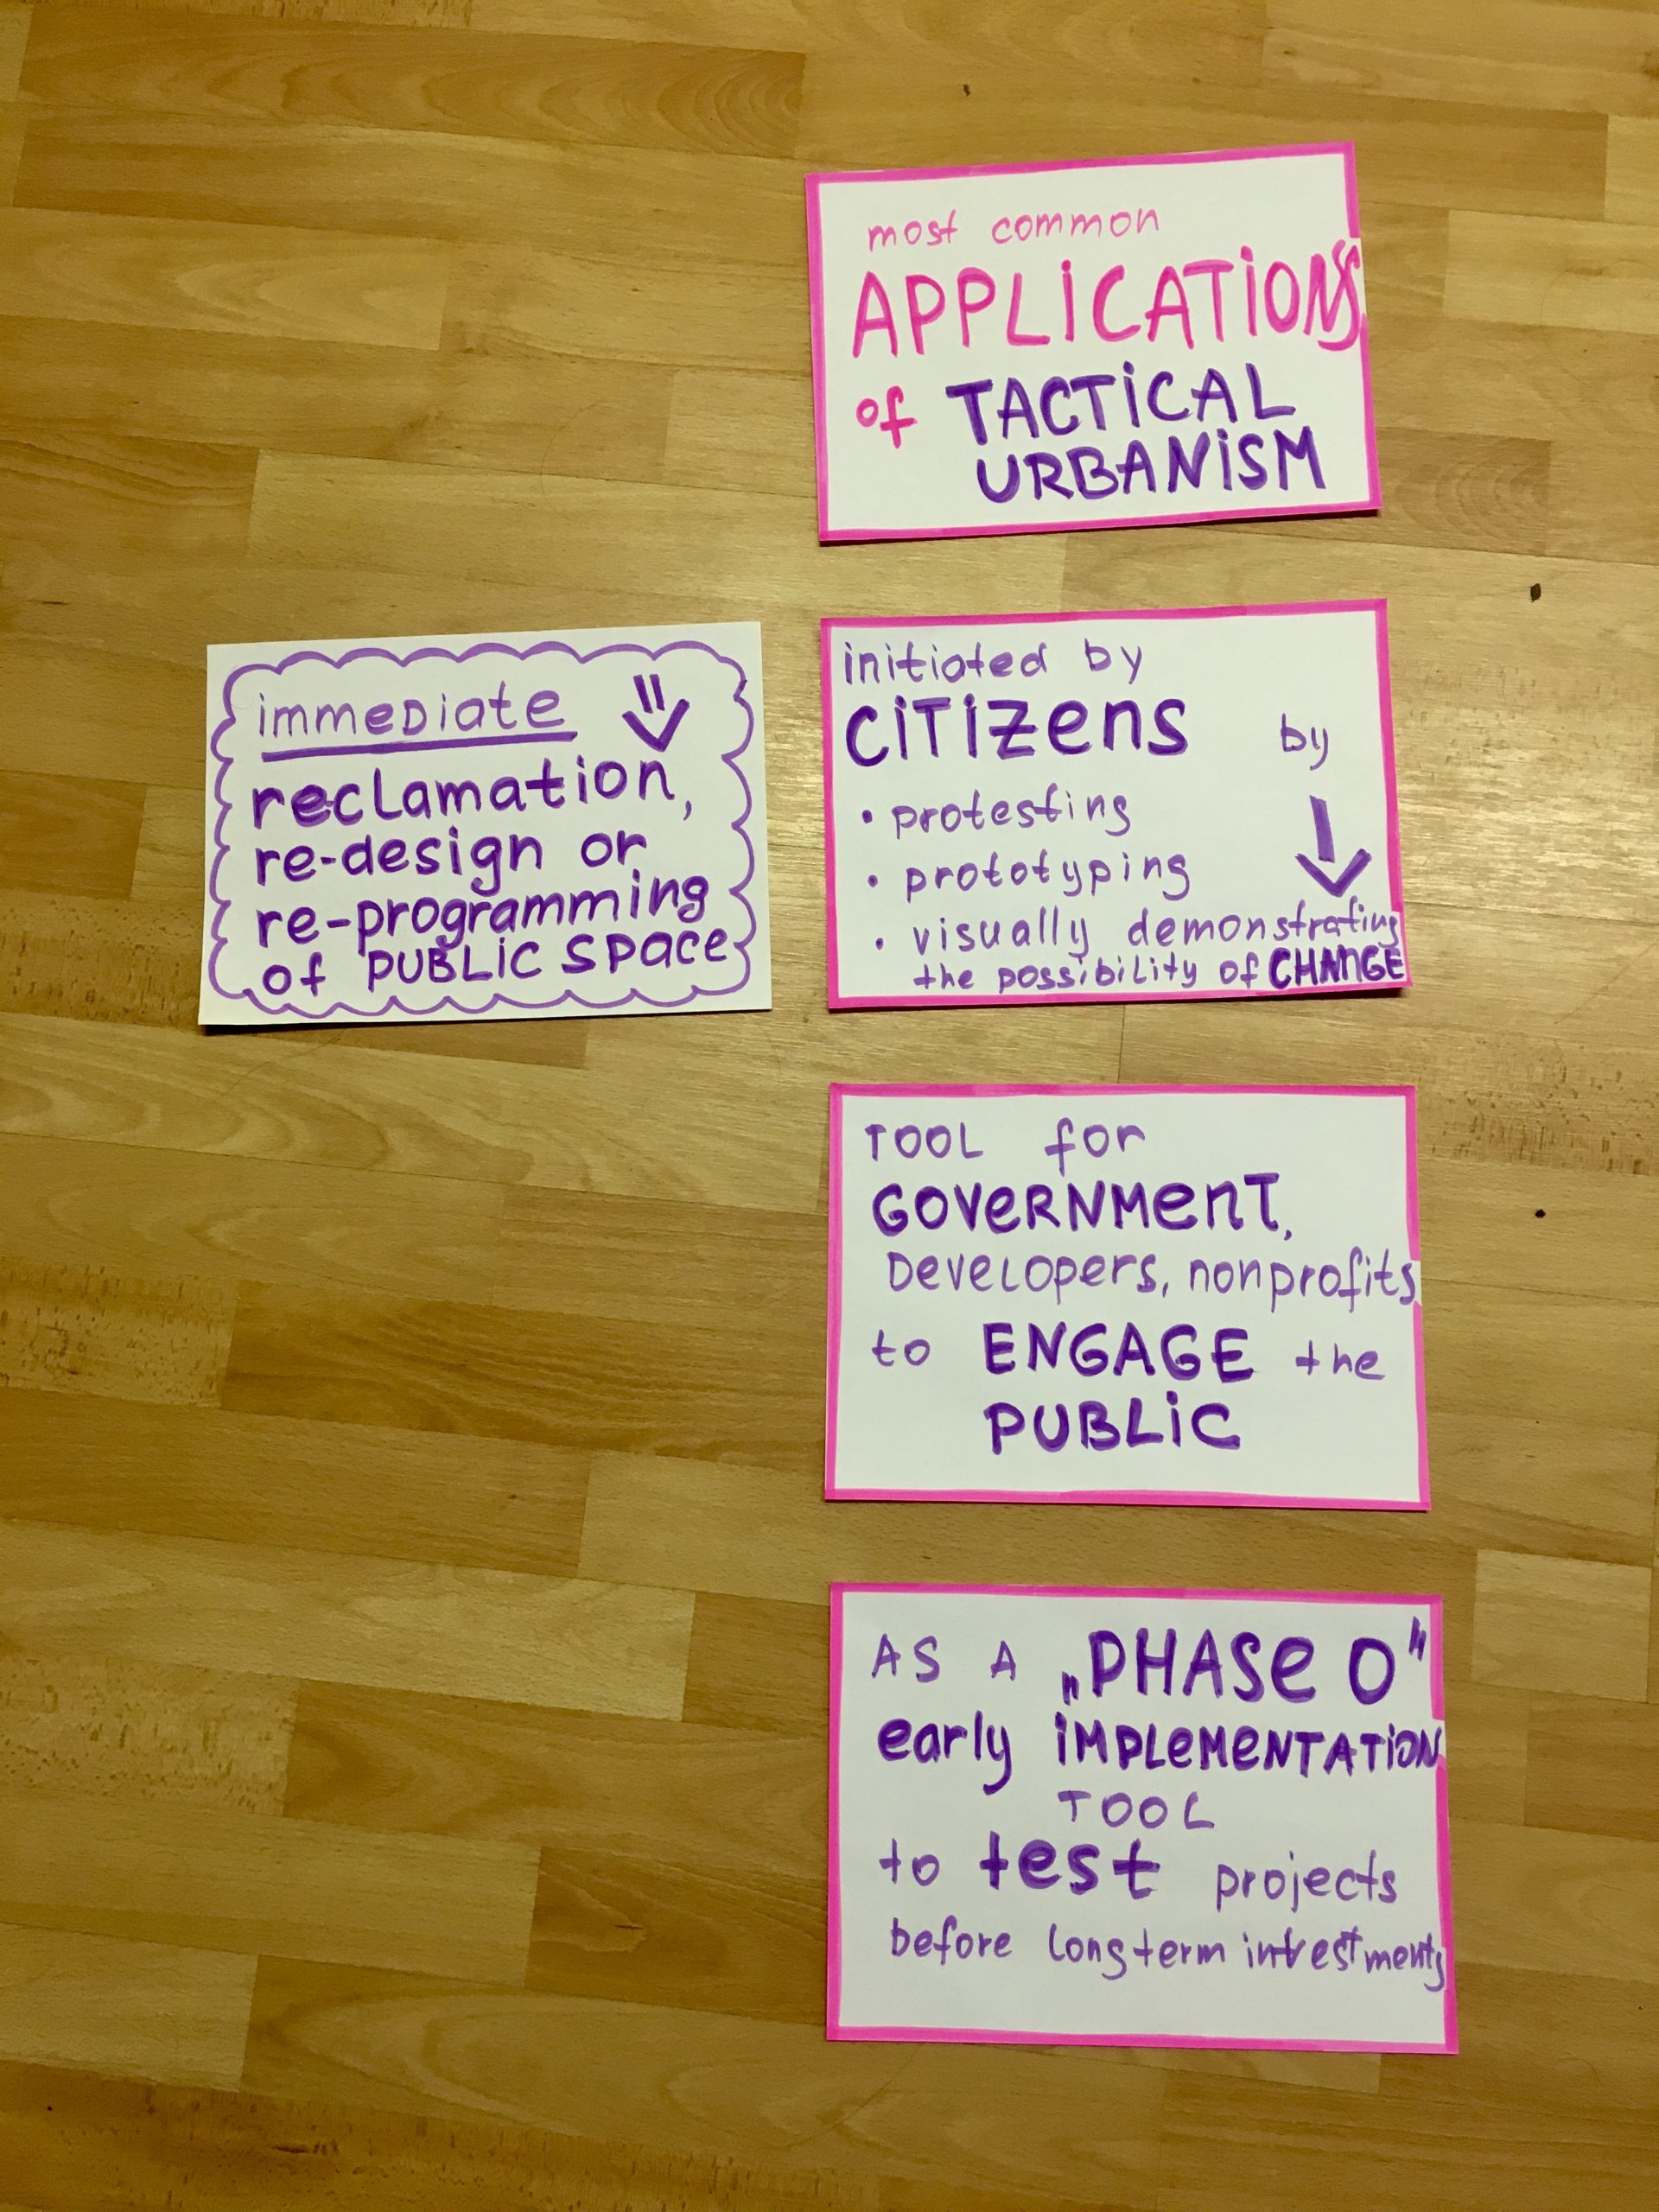 most common
APPLICATIONS
of TACTICAL
URBANISM
immediate
reclamation,
re-design or
re-programming
of PUBLIC SPACE
initiated by
CITIZENS by
• protesting
• prototyping
• visually demonstrating
the possibility of CHANGE
TOOL for
GOVERNMENT,
Developers, nonprofits
to ENGAGE the
PUBLIC
AS A „PHASE 0"
early IMPLEMENTATION
TOOL
to test projects
before long term investments